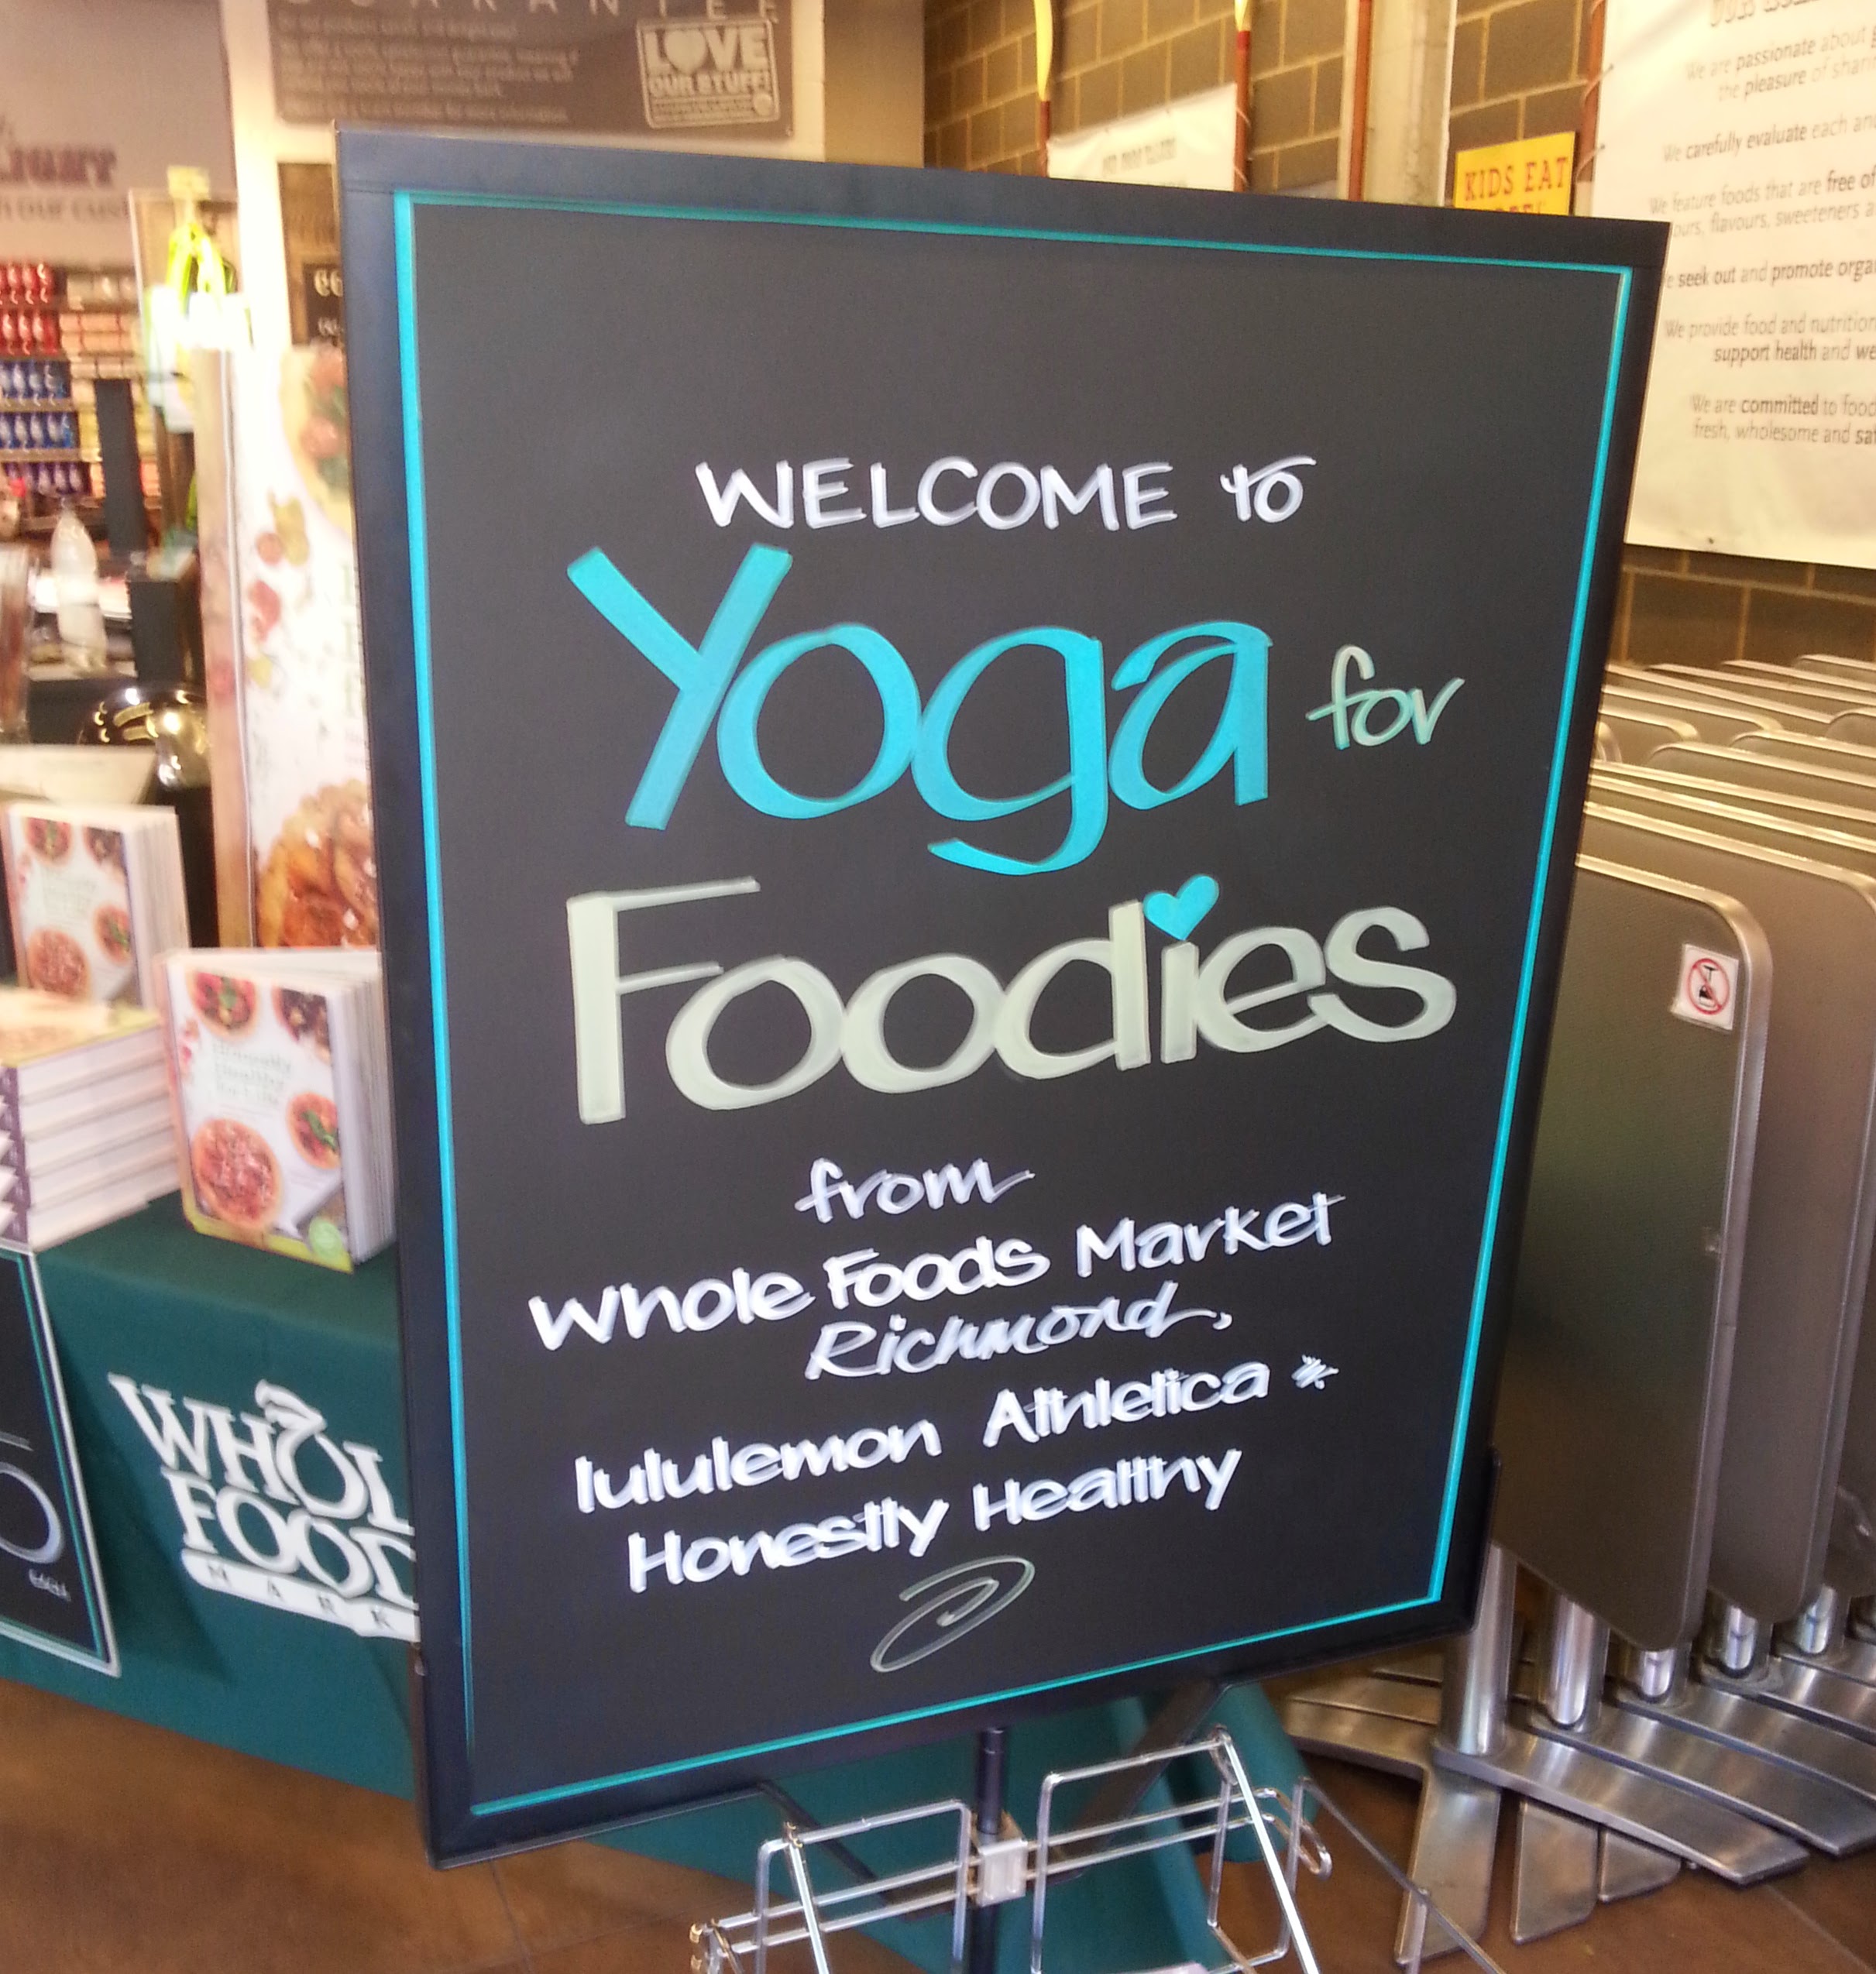 WELCOME to
Yoga for
Foodies
from
Whole Foods Market
Richmond,
lululemon Athletica *
Honestly Healthy
LOVE
OUR STUFF!
KIDS EAT
We are passionate about
the pleasure of
We carefully evaluate each
We feature foods that are free of
flavours, sweeteners
seek out and promote
We provide food and nutrition
support health and
We are committed to food
fresh, wholesome and
Honestly
Healthy
for Life
WHOL
FOOD
MARK